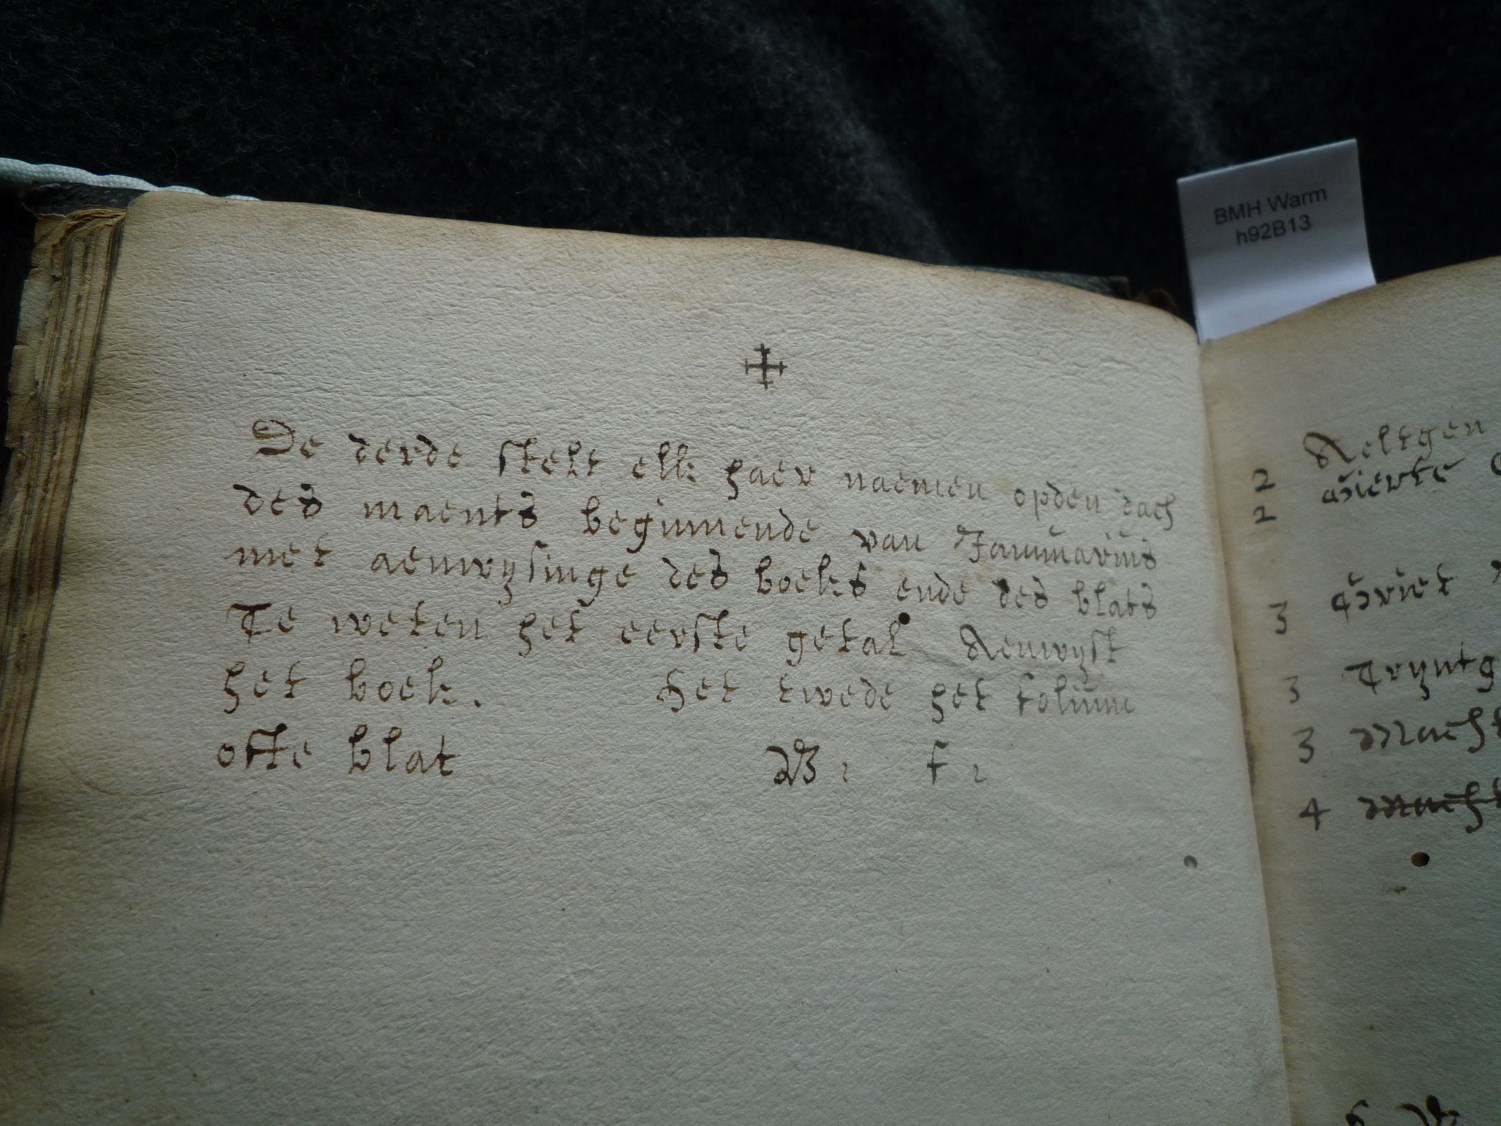 De derde stelt elk haer naemen opden dach
des maents beginnende van Januuarius
met aenwysinge des boeks ende des blats
Te weten het eerste getal Aenwyst
het boek. Het twede het folium
ofte blat B 1 f 2
BMH Warm
h92B13
2 Aeltgen
2
3 Griet
3 Tryntg
3 Macht
4 Macht